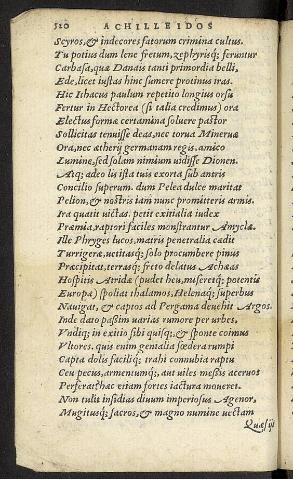 510 ACHILLEIDOS
Scyros,& indecores fatorum crimina cultus.
Tu potius dum lene fretum, zephyrisq; feruntur
Carbasa, quæ Danais tanti primordia belli,
Ede, licet iustas hinc sumere protinus iras.
Hic Ithacus paulum repetito longius orsu
Fertur in Hectorea (si talia credimus) ora
Electus formæ certamina soluere pastor
Sollicitas tenuisse deas, nec torua Mineruæ
Ora, nec ætherij germanam regis amico
Lumine, sed solam nimium uidisse Dionen.
Atq; adeo lis ista tuis exorta sub antris
Concilio superum, dum Pelea dulce maritat
Pelion, & nostris iam nunc promitteris armis.
Ira quatit uictas, petit exitialia iudex
Præmia, raptori faciles monstrantur Amyclæ.
Ille Phryges lucos, matris penetralia cædit
Turrigeræ, uetitasq; solo procumbere pinus
Præcipitat, terrasq; freto delatus Achæas
Hospitis Atridæ (pudet heu, miseretq; potentis
Europæ) spoliat thalamos, Helenaq; superbus
Nauigat, & captos ad Pergama deuehit Argos.
Inde dato passim uarias rumore per urbes,
Vndiq; in exitio sibi quisq;, & sponte coimus
Vltores. quis enim genitalia fœdera rumpi
Capta dolis facilq; trahi connubia raptu
Ceu pecus, armentumq;, aut uiles messis aceruos
Perferat? hæc etiam fortes iactura moueret.
Non tulit insidias diuum imperiosus Agenor,
Mugitusq; sacros, & magno numine uectam
Quæsijt